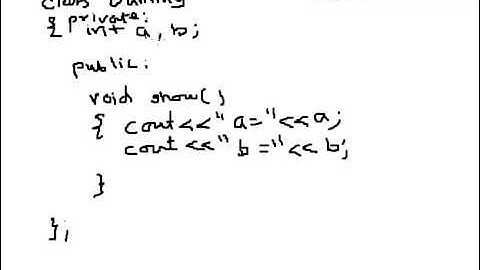 class Dummy
{ private:
int a, b;
public:
void show()
{ cout<<"a="<<a;
cout<<"b="<<b;
}
};